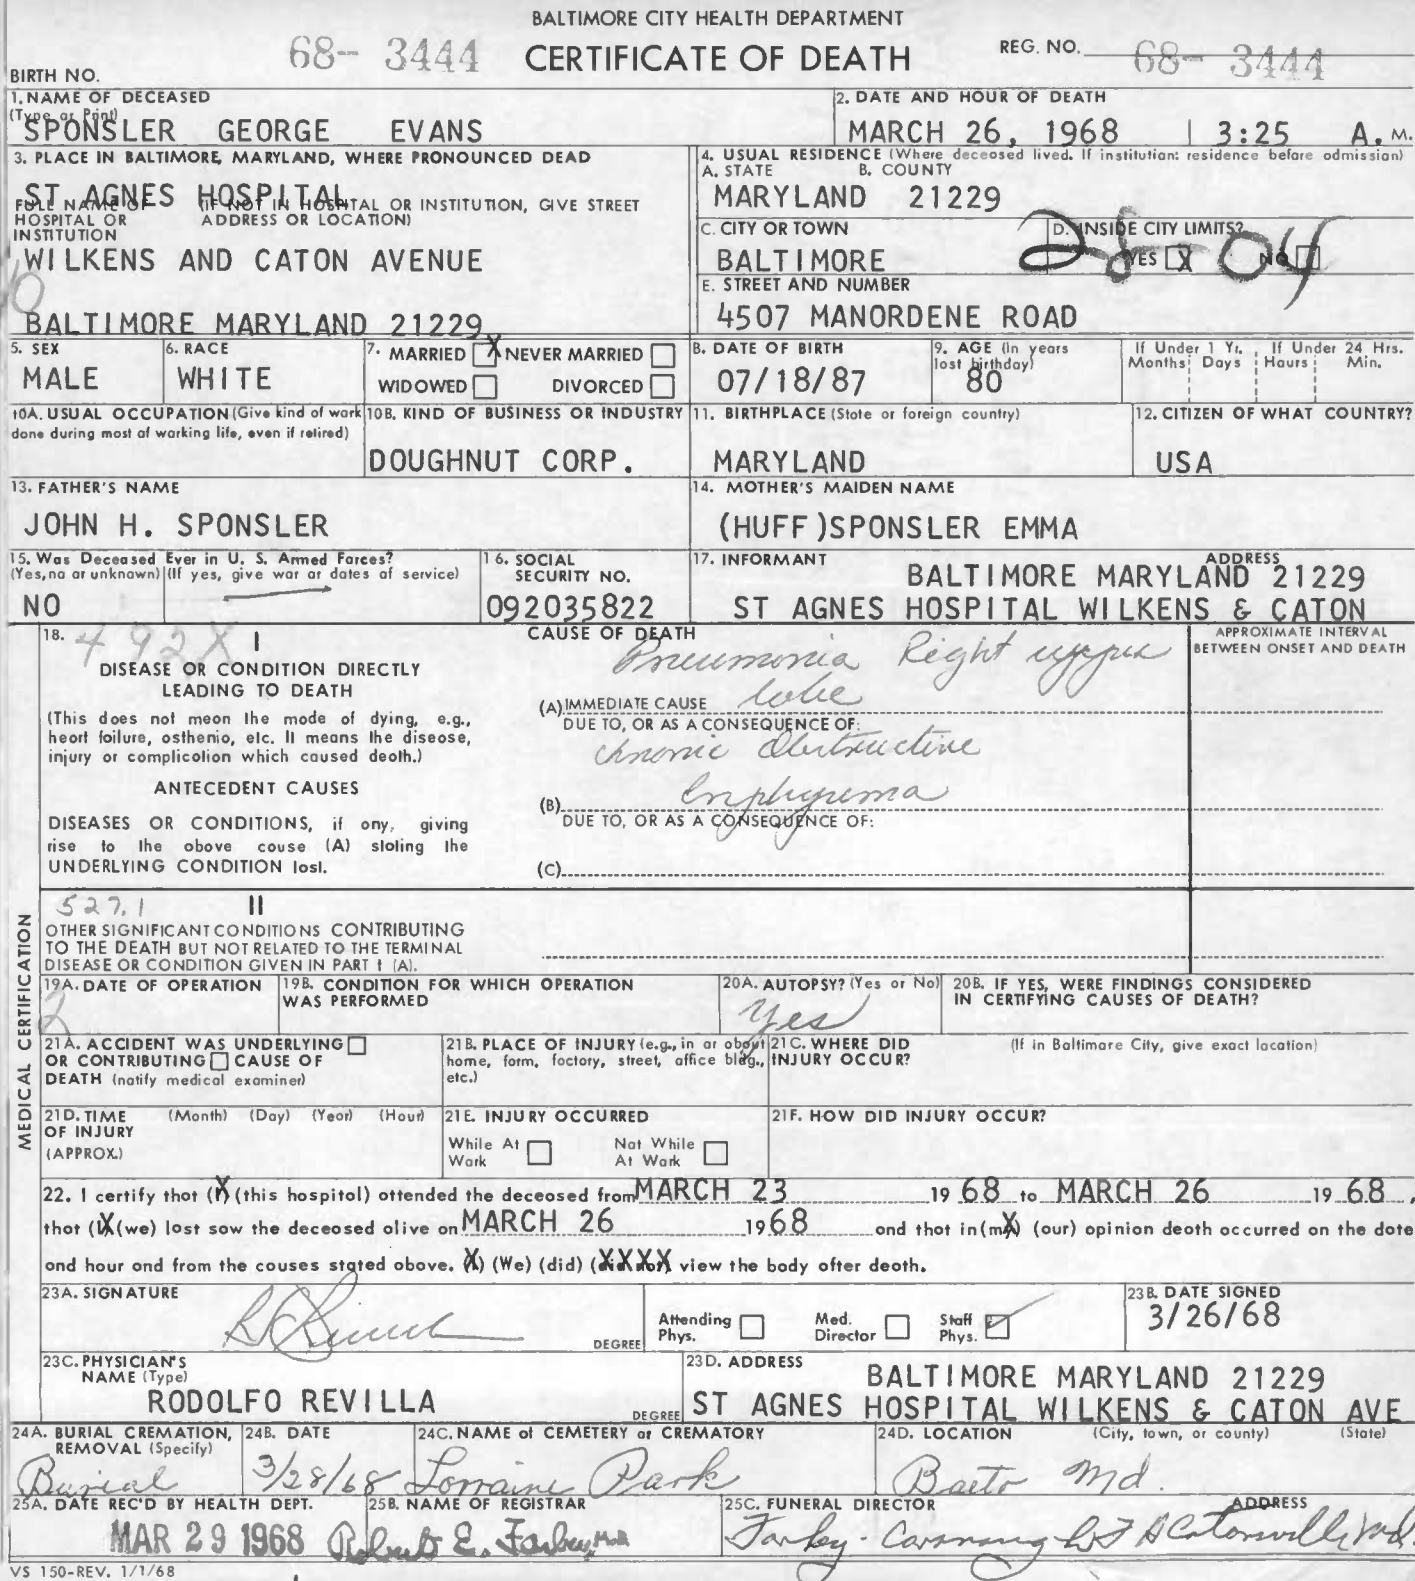 BALTIMORE CITY HEALTH DEPARTMENT
68- 3444 CERTIFICATE OF DEATH REG. NO. 68- 3444
BIRTH NO.
1. NAME OF DECEASED
(Type or Print)
SPONSLER GEORGE EVANS
2. DATE AND HOUR OF DEATH
MARCH 26, 1968 3:25 A. M.
3. PLACE IN BALTIMORE, MARYLAND, WHERE PRONOUNCED DEAD
ST AGNES HOSPITAL
FULL NAME OF (IF NOT IN HOSPITAL OR INSTITUTION, GIVE STREET
HOSPITAL OR ADDRESS OR LOCATION)
INSTITUTION
WILKENS AND CATON AVENUE
BALTIMORE MARYLAND 21229
4. USUAL RESIDENCE (Where deceased lived. If institution: residence before admission)
A. STATE B. COUNTY
MARYLAND 21229
C. CITY OR TOWN
BALTIMORE
D. INSIDE CITY LIMITS?
YES X NO
28 04
E. STREET AND NUMBER
4507 MANORDENE ROAD
5. SEX
MALE
6. RACE
WHITE
7. MARRIED X NEVER MARRIED
WIDOWED DIVORCED
8. DATE OF BIRTH
07/18/87
9. AGE (In years
last birthday)
80
If Under 1 Yr. If Under 24 Hrs.
Months Days Hours Min.
10A. USUAL OCCUPATION (Give kind of work
done during most of working life, even if retired)
10B. KIND OF BUSINESS OR INDUSTRY
DOUGHNUT CORP.
11. BIRTHPLACE (State or foreign country)
MARYLAND
12. CITIZEN OF WHAT COUNTRY?
USA
13. FATHER'S NAME
JOHN H. SPONSLER
14. MOTHER'S MAIDEN NAME
(HUFF)SPONSLER EMMA
15. Was Deceased Ever in U. S. Armed Forces?
(Yes, no or unknown) (If yes, give war or dates of service)
NO
16. SOCIAL
SECURITY NO.
092035822
17. INFORMANT ADDRESS
BALTIMORE MARYLAND 21229
ST AGNES HOSPITAL WILKENS & CATON
18. 492X I
DISEASE OR CONDITION DIRECTLY
LEADING TO DEATH
(This does not mean the mode of dying, e.g.,
heart failure, asthenia, etc. It means the disease,
injury or complication which caused death.)
ANTECEDENT CAUSES
DISEASES OR CONDITIONS, if any, giving
rise to the above cause (A) stating the
UNDERLYING CONDITION last.
CAUSE OF DEATH
Pneumonia Right upper
(A) IMMEDIATE CAUSE lobe
DUE TO, OR AS A CONSEQUENCE OF:
Chronic Obstructive
(B) Emphysema
DUE TO, OR AS A CONSEQUENCE OF:
(C)
APPROXIMATE INTERVAL
BETWEEN ONSET AND DEATH
527.1 II
OTHER SIGNIFICANT CONDITIONS CONTRIBUTING
TO THE DEATH BUT NOT RELATED TO THE TERMINAL
DISEASE OR CONDITION GIVEN IN PART I (A).
MEDICAL CERTIFICATION
19A. DATE OF OPERATION
2
19B. CONDITION FOR WHICH OPERATION
WAS PERFORMED
20A. AUTOPSY? (Yes or No)
Yes
20B. IF YES, WERE FINDINGS CONSIDERED
IN CERTIFYING CAUSES OF DEATH?
21A. ACCIDENT WAS UNDERLYING
OR CONTRIBUTING CAUSE OF
DEATH (notify medical examiner)
21B. PLACE OF INJURY (e.g., in or about
home, farm, factory, street, office bldg.,
etc.)
21C. WHERE DID (If in Baltimore City, give exact location)
INJURY OCCUR?
21D. TIME (Month) (Day) (Year) (Hour)
OF INJURY
(APPROX.)
21E. INJURY OCCURRED
While At Not While
Work At Work
21F. HOW DID INJURY OCCUR?
22. I certify that (X) (this hospital) attended the deceased from MARCH 23 1968 to MARCH 26 1968,
that (X) (we) last saw the deceased alive on MARCH 26 1968 and that in (my) (our) opinion death occurred on the date
and hour and from the causes stated above. (X) (We) (did) (did not) view the body after death.
23A. SIGNATURE
DEGREE
Attending Med. Staff
Phys. Director Phys.
23B. DATE SIGNED
3/26/68
23C. PHYSICIAN'S
NAME (Type)
RODOLFO REVILLA DEGREE
23D. ADDRESS
BALTIMORE MARYLAND 21229
ST AGNES HOSPITAL WILKENS & CATON AVE
24A. BURIAL CREMATION,
REMOVAL (Specify)
Burial
24B. DATE
3/28/68
24C. NAME of CEMETERY or CREMATORY
Lorraine Park
24D. LOCATION (City, town, or county) (State)
Balto Md.
25A. DATE REC'D BY HEALTH DEPT.
MAR 29 1968
25B. NAME OF REGISTRAR
Robert E. Farber, M.D.
25C. FUNERAL DIRECTOR ADDRESS
Farley - Catonsville Md.
VS 150-REV. 1/1/68